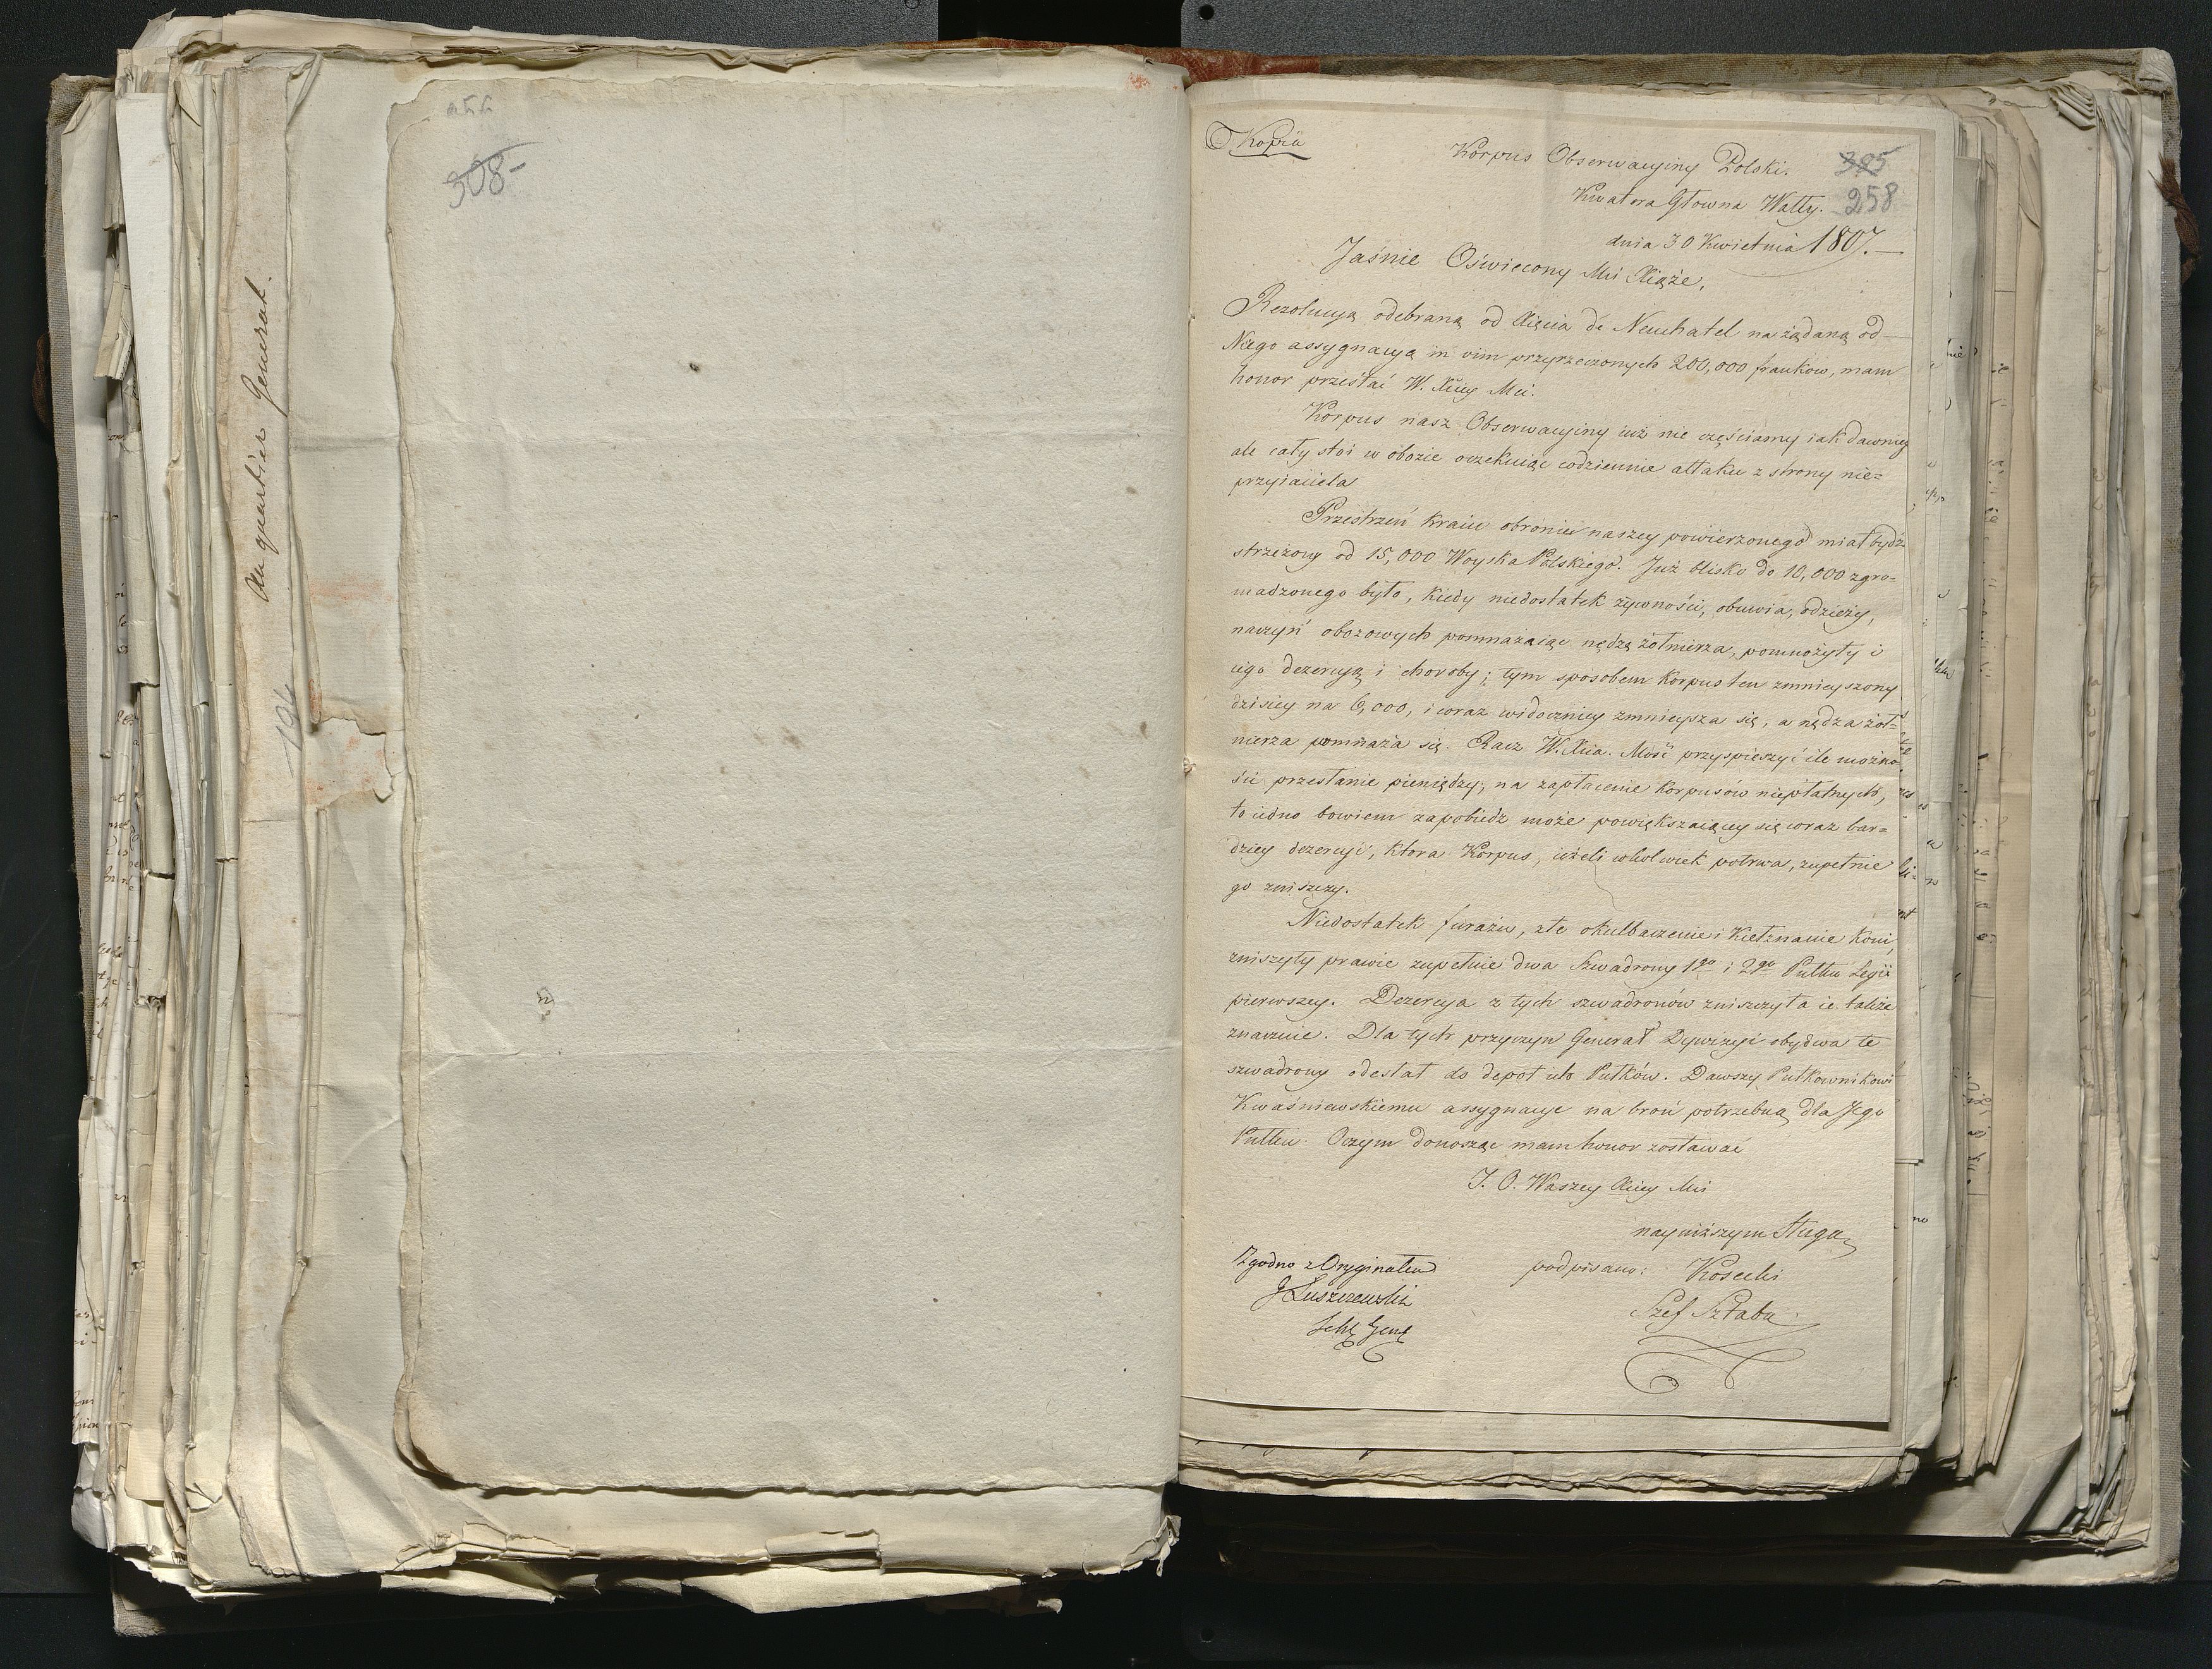 Au quartier General.
196
308-
Kopia
Korpus Obserwacyiny Polski.
385
Kwatera Głowna Wally.
258
dnia 30 Kwietnia 1807.
Jaśnie Oświecony Mci Xiąże,
Rezolucyą odebraną od Xięcia de Neuchatel na żądaną od
Niego assygnacyą in vim przyrzeczonych 200,000 franków, mam
honor przesłać W. Xcey Mci.
Korpus nasz Obserwacyiny iuż nie częściamy iak dawniey
ale cały stoi w obozie oczekuiąc codziennie attaku z strony nie=
przyiaciela
Przestrzeń Kraiu obronie naszey powierzonego miał bydź
strzeżony od 15,000 Woyska Polskiego. Już blisko do 10,000 zgro=
madzonego było, kiedy niedostatek żywności, obuwia, odzieży,
naczyń obozowych pomnażaiąc nędzę żołnierza, pomnożyły i
iego dezercyą i choroby; tym sposobem Korpus ten zmnieyszony
dzisiey na 6,000, i coraz widoczniey zmnieysza się, a nędza żoł=
nierza pomnaża się. Racz W. Xca. Mość przyspieszyć ile możno=
ści przesłanie pieniędzy, na zapłacenie Korpusów niepłatnych,
to iedno bowiem zapobiedz może powiększaiącey się coraz bar=
dziey dezercyi, ktora Korpus, ieżeli cokolwiek potrwa, zupełnie
go zniszczy.
Niedostatek furażu, złe okulbaczenie i Kiełznanie Koni,
zniszyły prawie zupełnie dwa Szwadrony 1go i 2go Pułku Legii
pierwszey. Dezercya z tych szwadronów zniszczyła ie także
znacznie. Dla tych przyczyn Generał Dywizyi obydwa te
szwadrony odesłał do depot ich Pułków. Dawszy Pułkownikowi
Kwaśniewskiemu assygnacye na broń potrzebną dla Jego
Pułku. Oczym donosząc mam honor zostawać
J. O. Waszey Xcey Mci
nayniższym Sługą
Zgodno z Oryginałem
podpisano: Kosecki
J Łuszczewski
Szef Sztabu
Sekr Genł